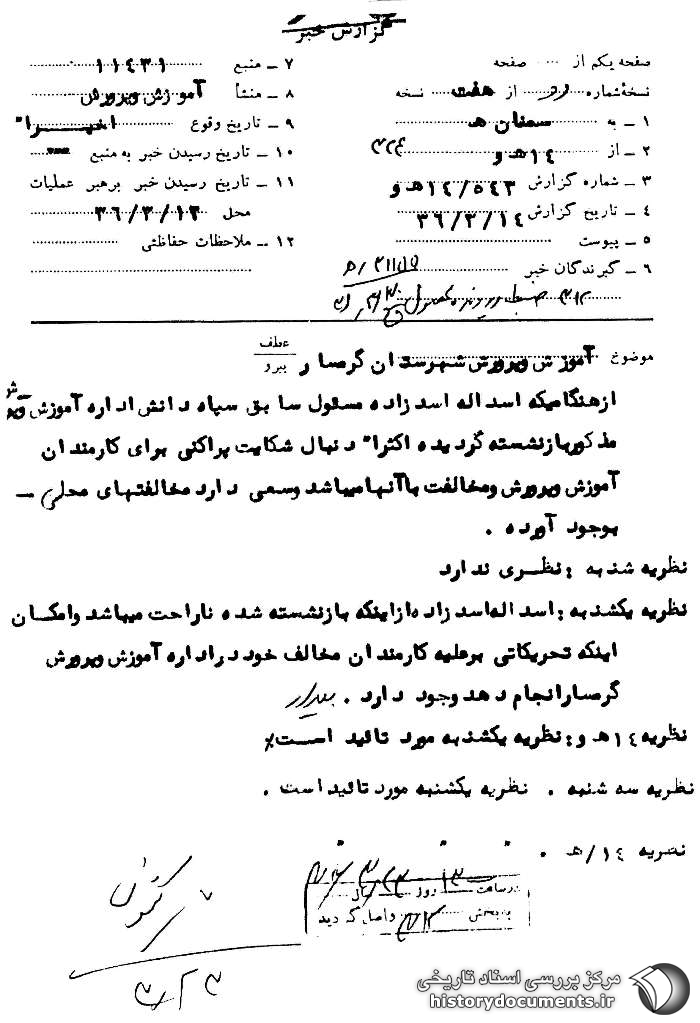 گزارش خبر
صفحه یکم از ... صفحه
نسخه شماره دو از هفت نسخه
۱ ــ به سمنان هـ
۲ ــ از ۱۴ هـ و ۳۲۴
۳ ــ شماره گزارش ۱۴/۵۴۳ هـ و
۴ ــ تاریخ گزارش ۳۶/۳/۱۴
۵ ــ پیوست
۶ ــ گیرندگان خبر
۳۱۲
۷ ــ منبع ۱۱۴۳۱
۸ ــ منشأ آموزش وپرورش
۹ ــ تاریخ وقوع اخیراً
۱۰ ــ تاریخ رسیدن خبر به منبع ---
۱۱ ــ تاریخ رسیدن خبر برهبر عملیات
محل ۳۶/۳/۱۳
۱۲ ــ ملاحظات حفاظتی
موضوع آموزش وپرورش شهرستان گرمسار
عطف
پیرو
ازهنگامیکه اسداله اسدزاده مسئول سابق سپاه دانش اداره آموزش وپرورش
مذکوربازنشسته گردیده اکثراً دنبال شکایت پراکنی برای کارمندان
آموزش وپرورش ومخالفت باآنهامیباشد وسعی دارد مخالفتهای محلی ــ
بوجود آورده .
نظریه شنبه : نظری ندارد
نظریه یکشنبه : اسداله اسدزاده ازاینکه بازنشسته شده ناراحت میباشد وامکان
اینکه تحریکاتی برعلیه کارمندان مخالف خود دراداره آموزش وپرورش
گرمسارانجام دهد وجود دارد . بیدار
نظریه ۱۴ هـ و : نظریه یکشنبه مورد تائید است٪
نظریه سه شنبه . نظریه یکشنبه مورد تائید است .
نظریه ۱۴/هـ .
درساعت ۱۳ روز سال
به بخش ۳۱۲ واصل گردید
۳/۲۳
مرکز بررسی اسناد تاریخی
historydocuments.ir